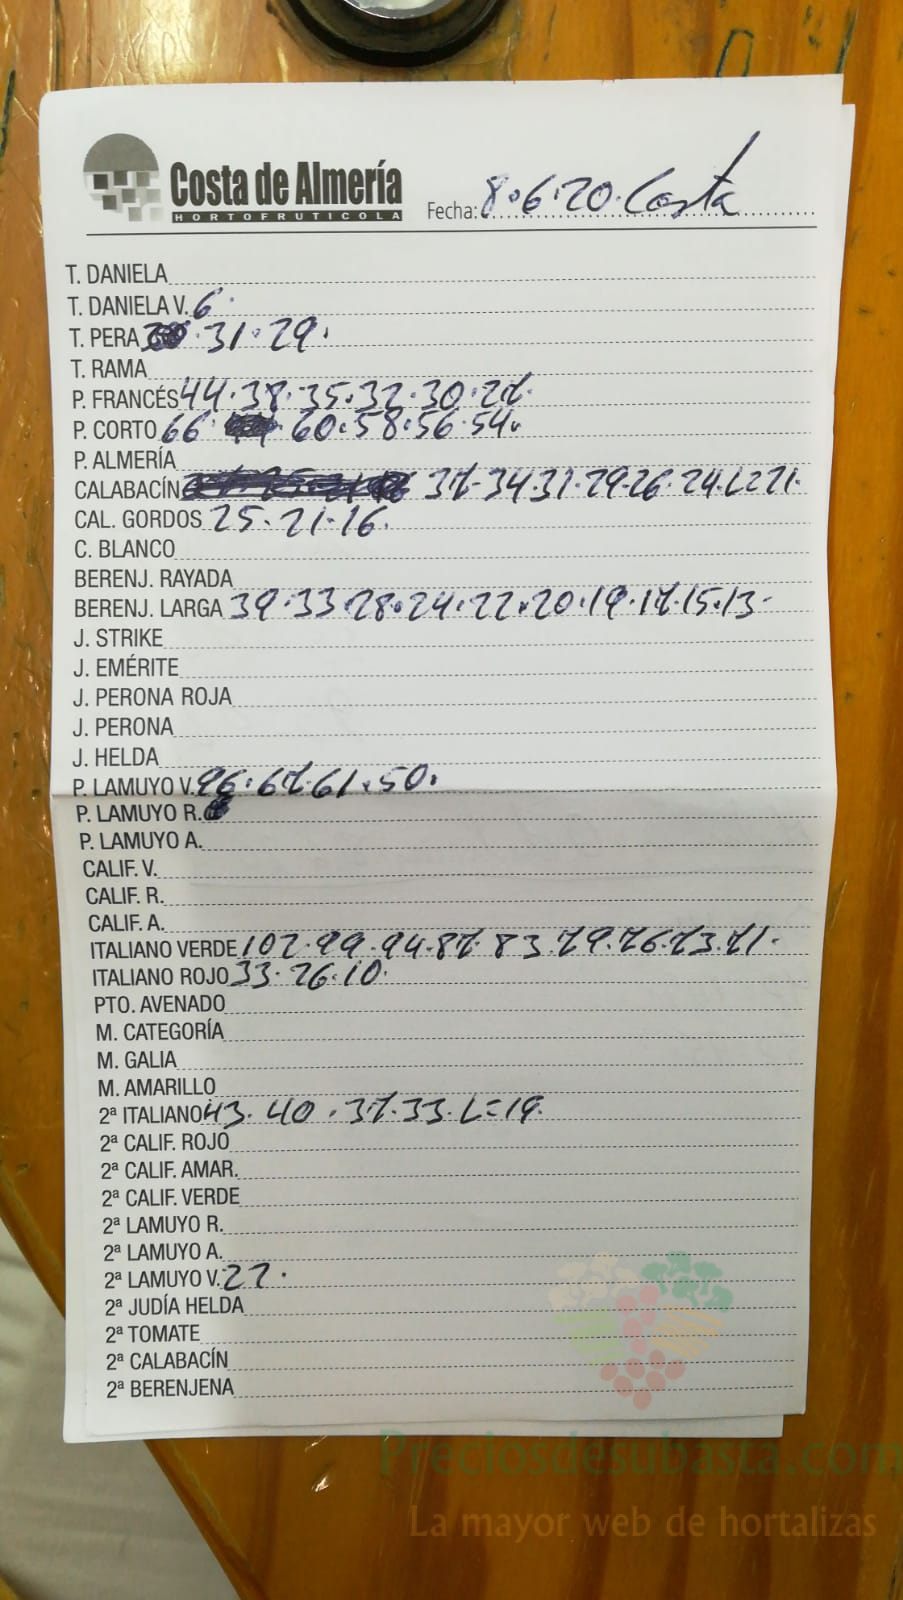 Costa de Almería
HORTOFRUTICOLA
Fecha: 8.6.20. Costa
T. DANIELA
T. DANIELA V. 6.
T. PERA 31.29.
T. RAMA
P. FRANCÉS 44.38.35.32.30.27.
P. CORTO 66. 60.58.56.54.
P. ALMERÍA
CALABACÍN 37.34.31.29.26.24.L=21.
CAL. GORDOS 25.21.16.
C. BLANCO
BERENJ. RAYADA
BERENJ. LARGA 39.33.28.24.22.20.19.17.15.13.
J. STRIKE
J. EMÉRITE
J. PERONA ROJA
J. PERONA
J. HELDA
P. LAMUYO V. 96.67.61.50.
P. LAMUYO R.
P. LAMUYO A.
CALIF. V.
CALIF. R.
CALIF. A.
ITALIANO VERDE 102.99.94.87.83.79.76.73.71.
ITALIANO ROJO 33.26.10.
PTO. AVENADO
M. CATEGORÍA
M. GALIA
M. AMARILLO
2ª ITALIANO 43.40.37.33.L=19.
2ª CALIF. ROJO
2ª CALIF. AMAR.
2ª CALIF. VERDE
2ª LAMUYO R.
2ª LAMUYO A.
2ª LAMUYO V. 27.
2ª JUDÍA HELDA
2ª TOMATE
2ª CALABACÍN
2ª BERENJENA
Preciosdesubasta.com
La mayor web de hortalizas